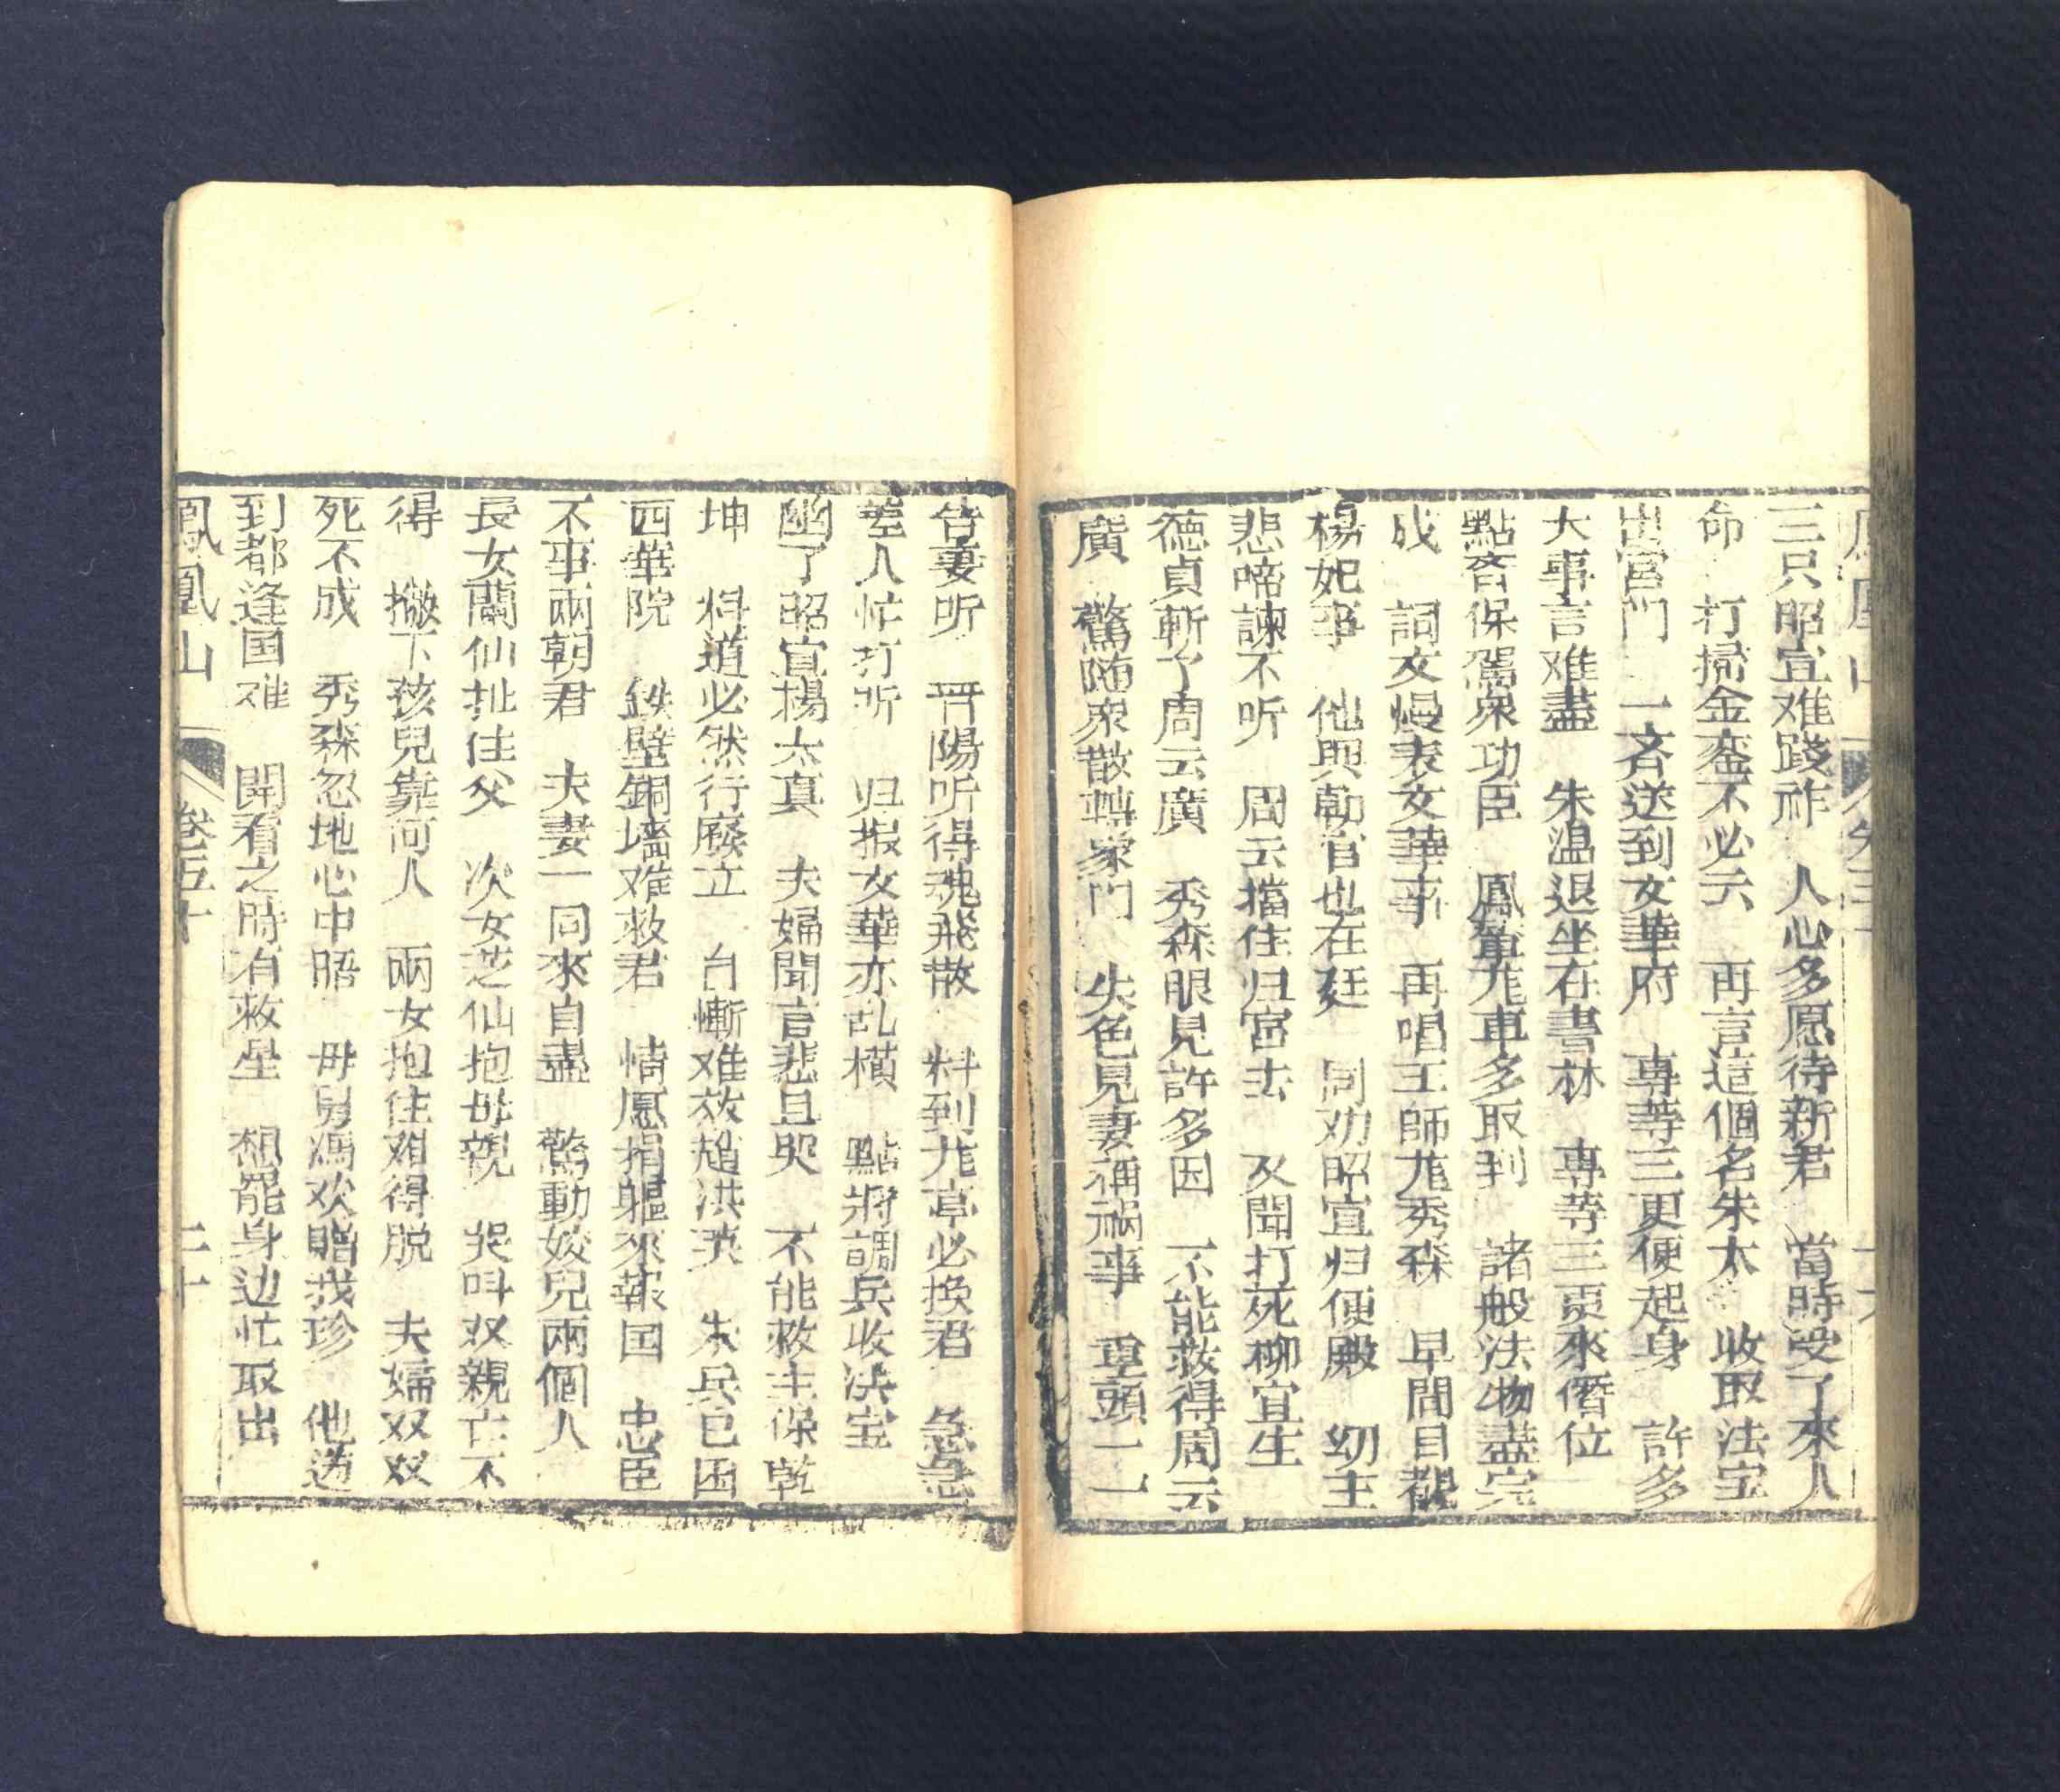 三只昭宣难踐祚　人心多愿待新君　當時受了來人
命　打掃金銮不必云　再言這個名朱太　收取法宝
出宮門　一斉送到文華府　專等三更便起身　許多
大事言难盡　朱温退坐在書林　專等三更來僭位
點斉保駕衆功臣　鳳輦龙車多取到　諸般法物盡完
成　詞文慢表文華事　再唱王師龙秀森　早間目覩
楊妃事　他與勛官也在廷　同劝昭宣归便殿　幼主
悲啼諫不听　周云擋住归宮去　又聞打死柳宜生
德貞斬了周云廣　秀森眼見許多因　不能救得周云
廣　驚随衆散轉家門　失色見妻称祸事　重頭一一
告妻听　晋陽听得魂飛散　料到龙亭必換君　急急
差人忙打听　归报文華亦乱横　點將調兵收法宝
幽了昭宣楊太真　夫婦聞言悲且哭　不能救主保乾
坤　料道必然行廢立　自慚难效趙洪英　朱兵已困
西華院　鉄壁銅墙难救君　情愿捐軀來報国　忠臣
不事兩朝君　夫妻一同來自盡　驚動姣兒兩個人
長女蘭仙扯住父　次女芝仙抱母親　哭叫双親亡不
得　撇下孩兒靠何人　兩女抱住难得脱　夫婦双双
死不成　秀森忽地心中晤　母舅馮欢贈我珍　他道
到都逢国难　開看之時有救星　想罷身边忙取出
鳳凰山　卷五十　二十